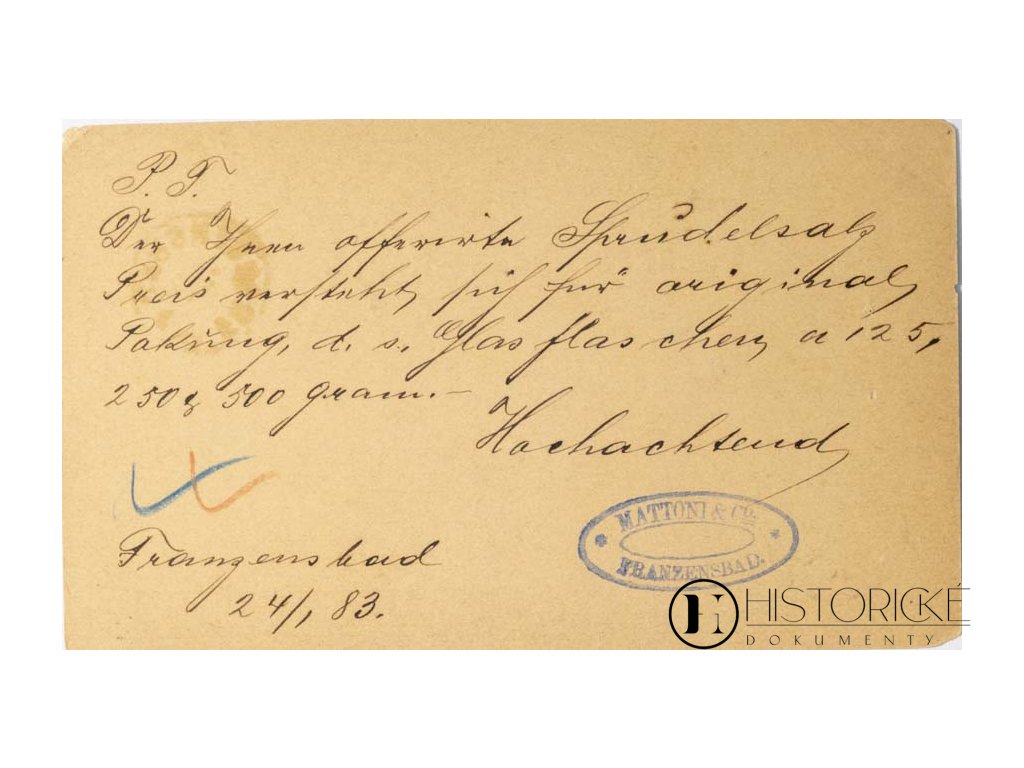 P. T.
Der Ihnen offerirte Sprudelsalz
Preis versteht sich für original
Pakung, d. s. Glasflaschen a 125,
250 & 500 gram. –
Hochachtend
MATTONI & CO.
FRANZENSBAD.
Franzensbad
24/1 83.
HISTORICKÉ
DOKUMENTY